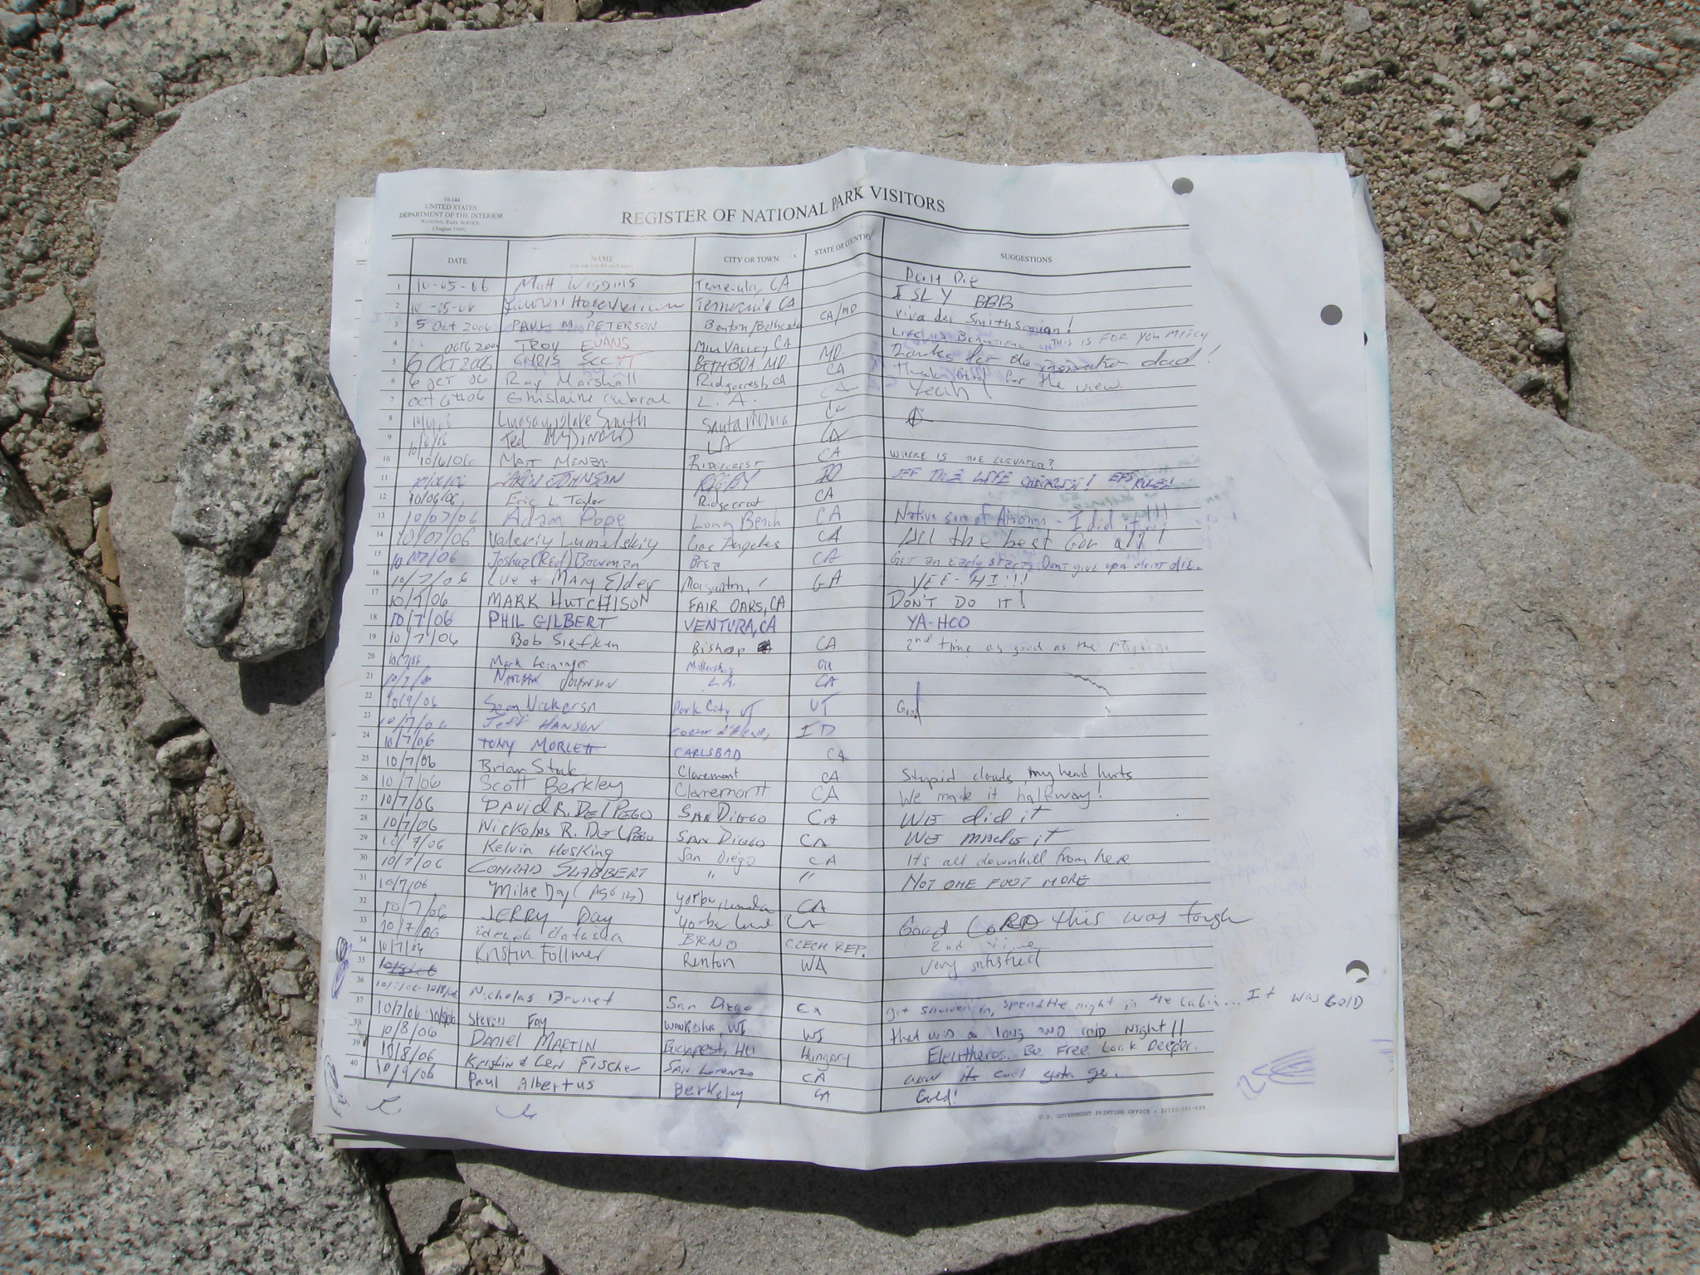 10-144
UNITED STATES
DEPARTMENT OF THE INTERIOR
REGISTER OF NATIONAL PARK VISITORS
DATE NAME CITY OR TOWN STATE OR COUNTRY SUGGESTIONS
1 10-05-06 Matt Wiggins Temecula, CA
2 Temecula CA I SLY BBB
3 5 Oct 2006 PAUL M. PETERSON CA/MD Viva der Smithsonian!
4 TROY EVANS MILL VALLEY CA THIS IS FOR YOU
5 6 OCT 2006 CHRIS SCOTT BETHESDA, MD MD Thanks for the information dad!
6 6 OCT 06 Ray Marshall Ridgecrest, CA CA Thank for the view
7 OCT 6th 06 Ghislaine Cabral L.A. Yeah
8 Smith Ca
9 10/6/06 Ted LA CA
10 10/6/06 MATT MENZA RIDGECREST CA WHERE IS THE ELEVATOR?
11 JOHNSON RIGBY ID
12 10/06/06 Eric L Taylor Ridgecrest CA
13 10/07/06 Adam Pope Long Beach CA Native son of Arizona - I did it...
14 10/07/06 Valeriy Los Angeles CA All the best for all!
15 10/07/06 Joshua (Red) Bowman Brea CA Get an early start. Don't give up. don't die.
16 10/7/06 + Mary Elder GA YEE-HI!!!
17 10/7/06 MARK HUTCHISON FAIR OAKS, CA DON'T DO IT!
18 10/7/06 PHIL GILBERT VENTURA, CA YA-HOO
19 10/7/06 Bob Siefken Bishop CA 2nd time as good as the
20 Mark OH
21 NATHAN JOHNSON L.A. CA
22 Sean Vickersn Park City UT UT
23 10/7/06 JEFF HANSON ID
24 10/7/06 TONY MORLETT CARLSBAD CA
25 10/7/06 Brian Claremont CA Stupid clouds, my head hurts
26 10/7/06 Scott Berkley Claremont CA We made it halfway!
27 10/7/06 DAVID R. DEL PEGO SAN DIEGO CA WE did it
28 10/7/06 NICKOLAS R. DEL PEGO SAN DIEGO CA WE made it
29 10/7/06 Kelvin Hosking San Diego CA It's all downhill from here
30 10/7/06 CONRAD SLABBERT " " NOT ONE FOOT MORE
31 10/7/06 Mike Day Yorba Linda CA
32 10/7/06 JERRY DAY Yorba Linda CA Good LORD this was tough
33 10/7/06 BRNO CZECH REP. 2nd time
34 10/7/06 Kristin Follmer Renton WA very satisfied
35
36 Nicholas Brunet San Diego CA got snowed in, spend the night in the cabin... It was COLD
37 10/7/06 Steven Foy WAUKESHA, WI WI that was a long and cold night!!
38 10/8/06 DANIEL MARTIN Budapest, HU Hungary Eleutheros. Be Free. Look Deeper.
39 10/8/06 Kristin & Len Fischer SAN LORENZO CA
40 10/9/06 Paul Albertus Berkeley CA Cold!
U.S. GOVERNMENT PRINTING OFFICE